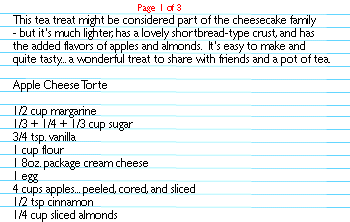 Page 1 of 3
This tea treat might be considered part of the cheesecake family
- but it's much lighter, has a lovely shortbread-type crust, and has
the added flavors of apples and almonds. It's easy to make and
quite tasty... a wonderful treat to share with friends and a pot of tea.
Apple Cheese Torte
1/2 cup margarine
1/3 + 1/4 + 1/3 cup sugar
3/4 tsp. vanilla
1 cup flour
1 8oz. package cream cheese
1 egg
4 cups apples... peeled, cored, and sliced
1/2 tsp cinnamon
1/4 cup sliced almonds